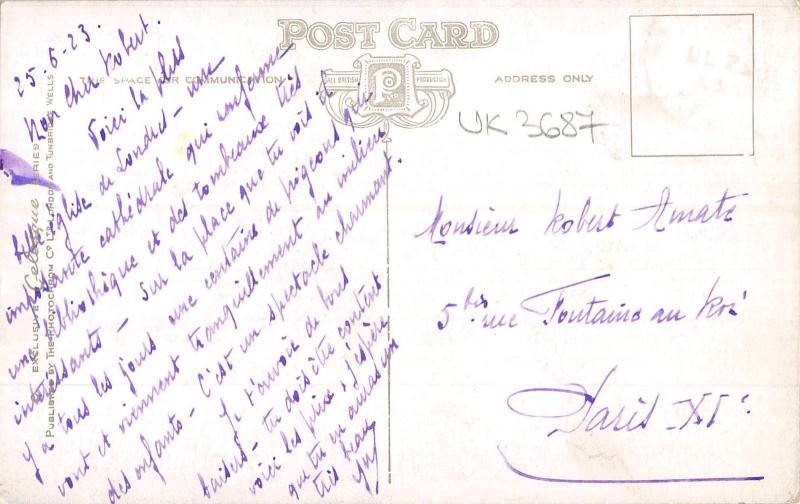 POST CARD
THIS SPACE FOR COMMUNICATION
ALL BRITISH PRODUCTION
ADDRESS ONLY
UK 3687
EXCLUSIVE Celesque SERIES
PUBLISHED BY THE PHOTOCHROM CO LTD LONDON AND TUNBRIDGE WELLS
25-6-23.
Mon cher Robert.
Voici la plus
belle église de Londres - une
imposante cathédrale qui renferme
une bibliothèque et des tombeaux très
intéressants - Sur la place que tu vois il
y a tous les jours une centaine de pigeons qui
vont et viennent tranquillement au milieu
des enfants - C'est un spectacle charmant.
Je t'envoie de bons
baisers - tu dois être content
voici les prix, j'espère
que tu en auras un
très beau
Monsieur Robert Amate
5 bis rue Fontaine au Roi
Paris - XIe